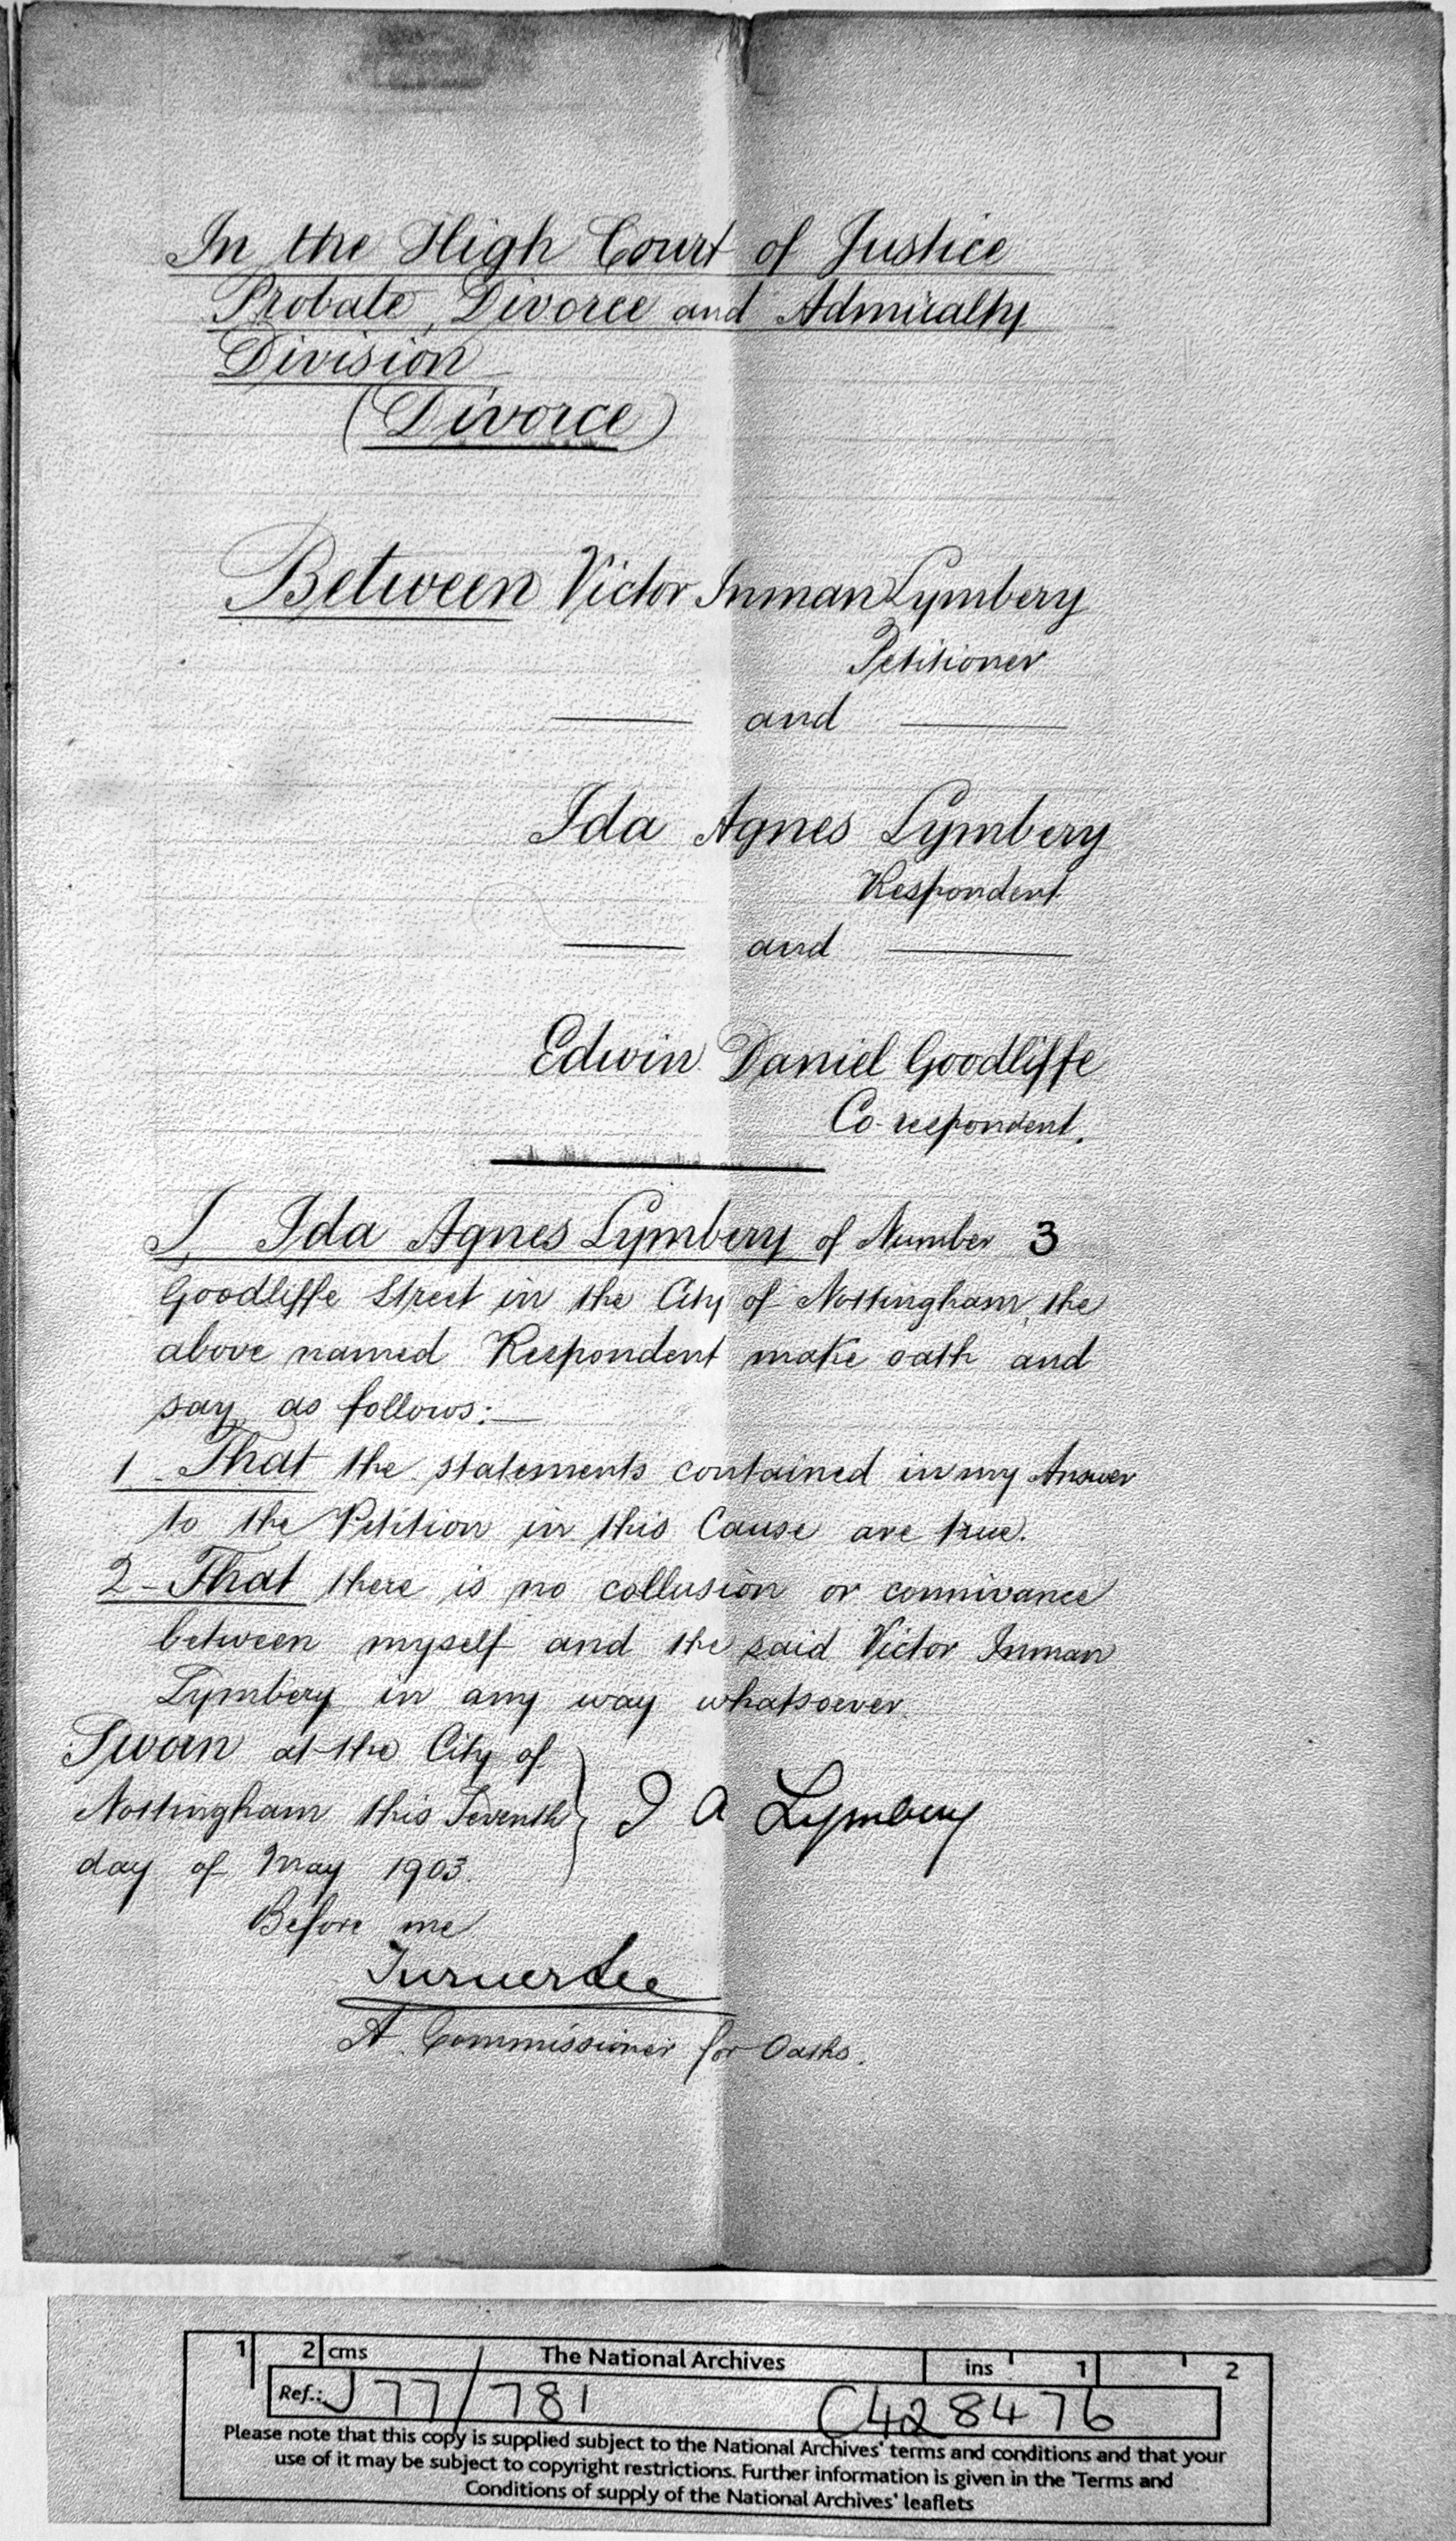 In the High Court of Justice
Probate, Divorce and Admiralty
Division
(Divorce)
Between Victor Inman Lymbery
Petitioner
and
Ida Agnes Lymbery
Respondent
and
Edwin Daniel Goodliffe
Co-respondent.
I, Ida Agnes Lymbery of Number 3
Goodliffe Street in the City of Nottingham, the
above named Respondent make oath and
say as follows:—
1 - That the statements contained in my Answer
to the Petition in this Cause are true.
2 - That there is no collusion or connivance
between myself and the said Victor Inman
Lymbery in any way whatsoever.
Sworn at the City of
Nottingham this Seventh
day of May 1903.
I A Lymbery
Before me
Turner Lee
A Commissioner for Oaths.
1 2 cms The National Archives ins 1 2
Ref.: J 77/781 C428476
Please note that this copy is supplied subject to the National Archives' terms and conditions and that your
use of it may be subject to copyright restrictions. Further information is given in the 'Terms and
Conditions of supply of the National Archives' leaflets